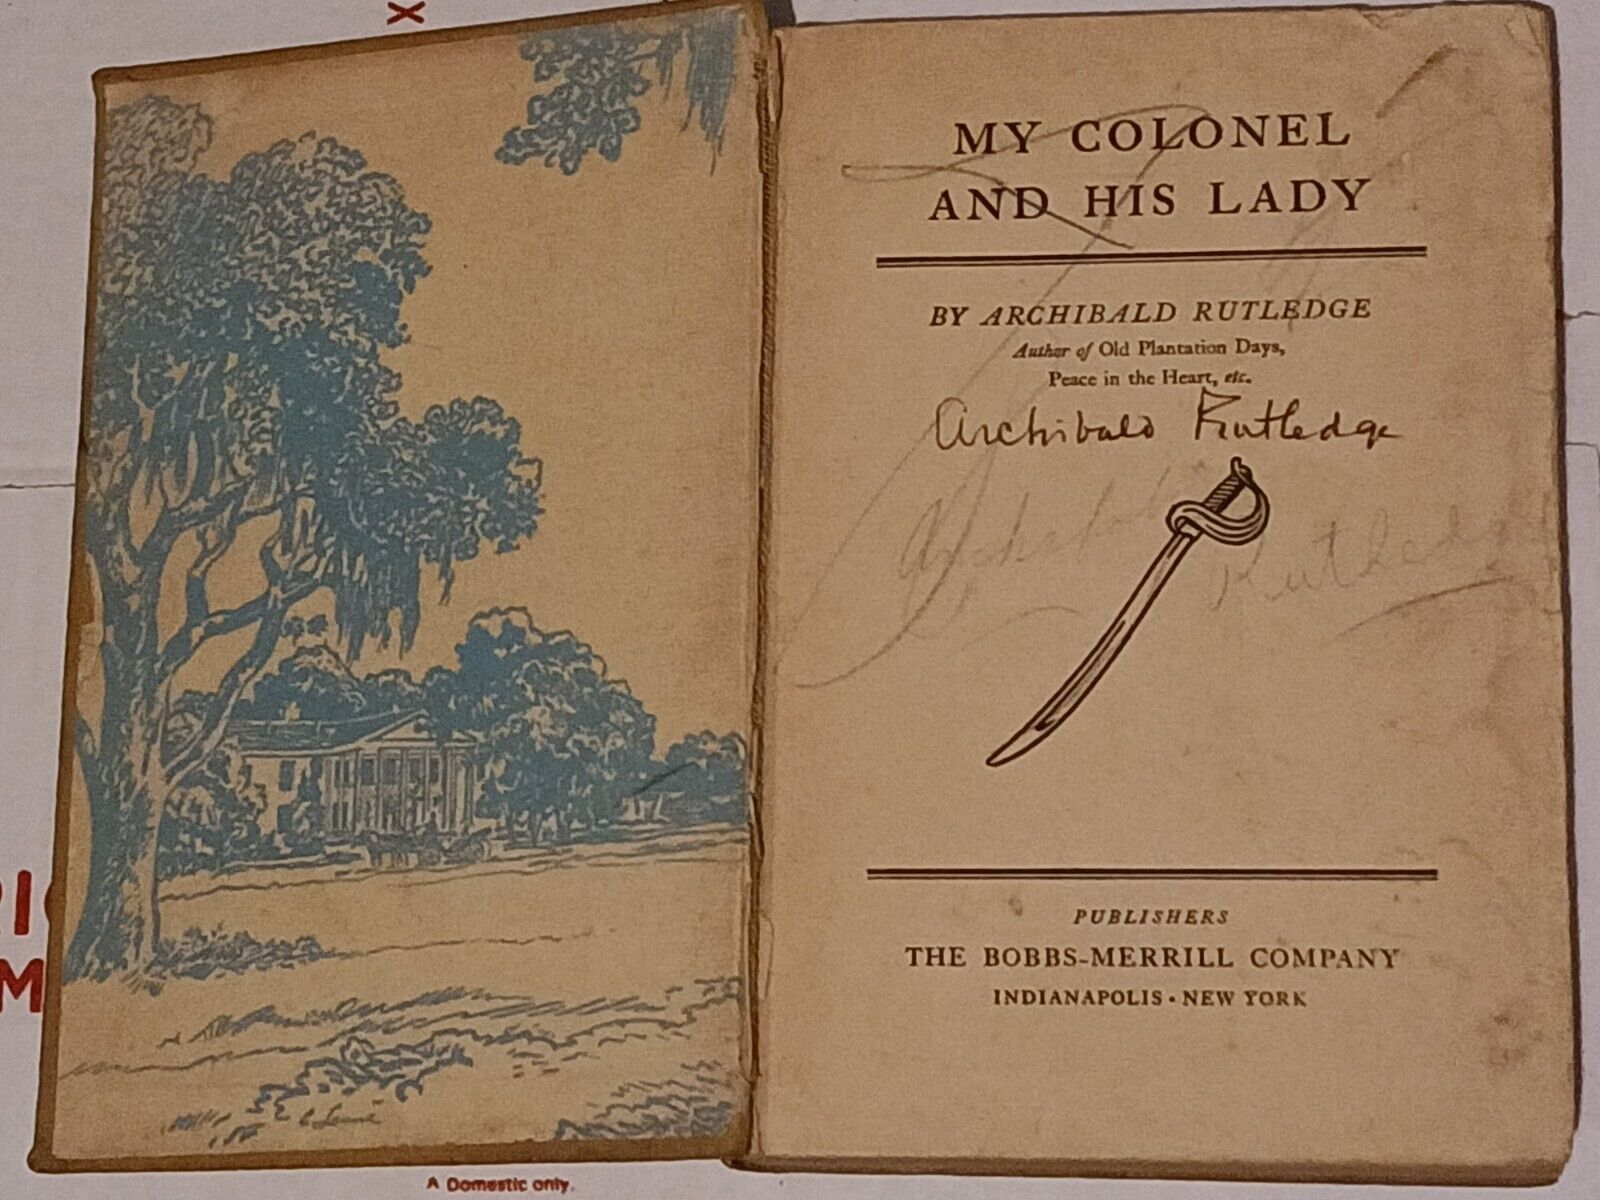 X
MY COLONEL
AND HIS LADY
BY ARCHIBALD RUTLEDGE
Author of Old Plantation Days,
Peace in the Heart, etc.
Archibald Rutledge
Archibald Rutledge
PUBLISHERS
THE BOBBS-MERRILL COMPANY
INDIANAPOLIS • NEW YORK
A Domestic only.